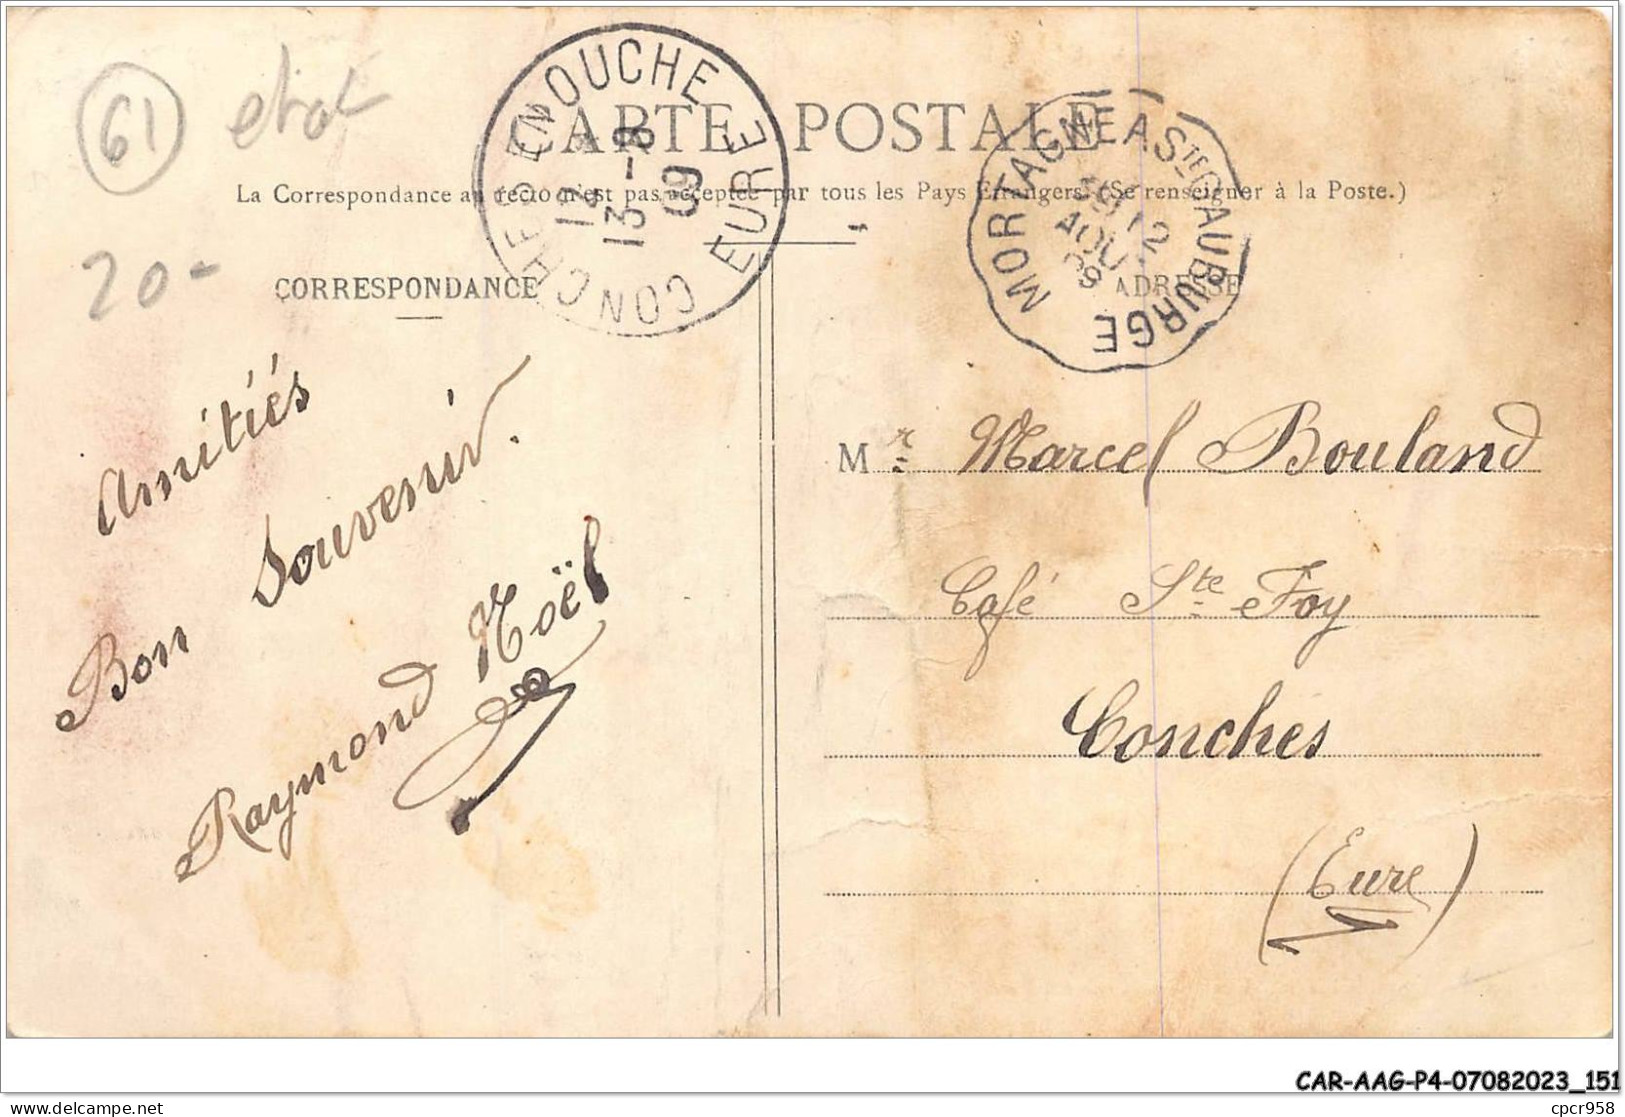 61
20-
CARTE POSTALE
La Correspondance au recto n'est pas acceptée par tous les Pays Étrangers. (Se renseigner à la Poste.)
CONCHES EN OUCHE
13 - 8
09
EURE
MORTAGNE A STE GAUBURGE
12
AOU
09
CORRESPONDANCE
ADRESSE
Amitiés
Bon Souvenir.
Raymond Noël
Mr Marcel Bouland
Café Ste Foy
Conches
(Eure)
CAR-AAG-P4-07082023_151
delcampe.net
cpcr958